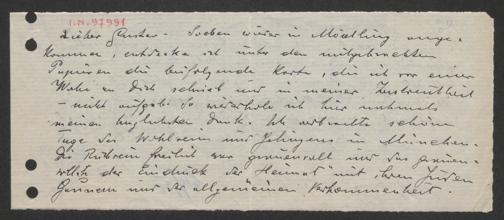 I.N. 97991
Lieber Gustav - Soeben wieder in Mödling ange-
kommen, entdecke ich unter den mitgebrachten
Papieren die beifolgende Karte, die ich vor einer
Woche an Dich schrieb und in meiner Zerstreutheit
- nicht aufgab. So wiederhole ich hier nochmals
meinen herzlichsten Dank. Ich verbrachte schöne
Tage des Wohlseins und Gelingens in München.
Die Rückreise freilich war grauenvoll und das grauen-
vollste der Eindruck der "Heimat" mit ihren Juden
Gaunern und der allgemeinen Verkommenheit.